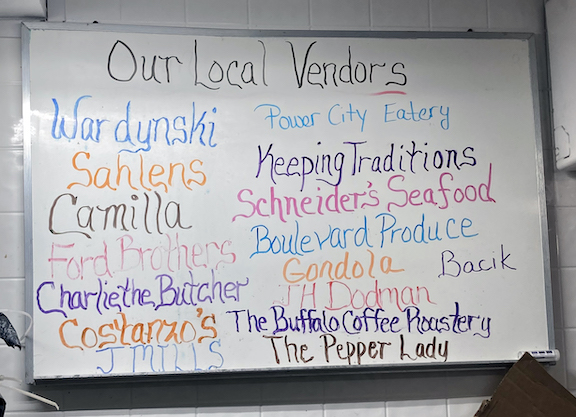 Our Local Vendors
Wardynski
Sahlens
Camilla
Ford Brothers
Charlie, the, Butcher
Costanzo's
J MILLS
Power City Eatery
Keeping Traditions
Schneider's Seafood
Boulevard Produce
Gondola
Bacik
JH Dodman
The Buffalo Coffee Roastery
The Pepper Lady